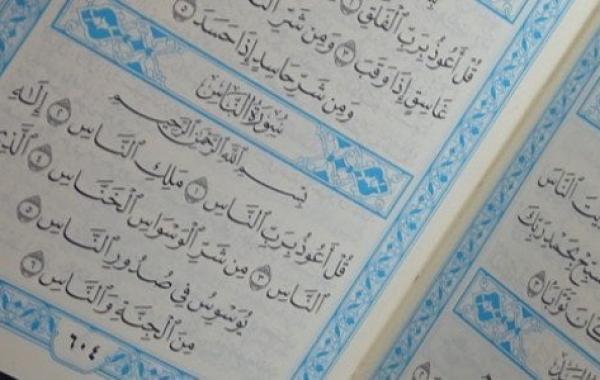 قُلْ أَعُوذُ بِرَبِّ ٱلْفَلَقِ ١
غَاسِقٍ إِذَا وَقَبَ ٣ وَمِن شَرِّ
وَمِن شَرِّ حَاسِدٍ إِذَا حَسَدَ ٥
سُورَةُ النَّاسِ
بِسْمِ ٱللَّهِ ٱلرَّحْمَٰنِ ٱلرَّحِيمِ
قُلْ أَعُوذُ بِرَبِّ ٱلنَّاسِ ١ مَلِكِ ٱلنَّاسِ ٢ إِلَٰهِ
ٱلنَّاسِ ٣ مِن شَرِّ ٱلْوَسْوَاسِ ٱلْخَنَّاسِ ٤ ٱلَّذِى
يُوَسْوِسُ فِى صُدُورِ ٱلنَّاسِ ٥
مِنَ ٱلْجِنَّةِ وَٱلنَّاسِ ٦
٦٠٤
ٱلنَّاسَ
بِحَمْدِ رَبِّكَ
كَانَ تَوَّابًۢا ٣